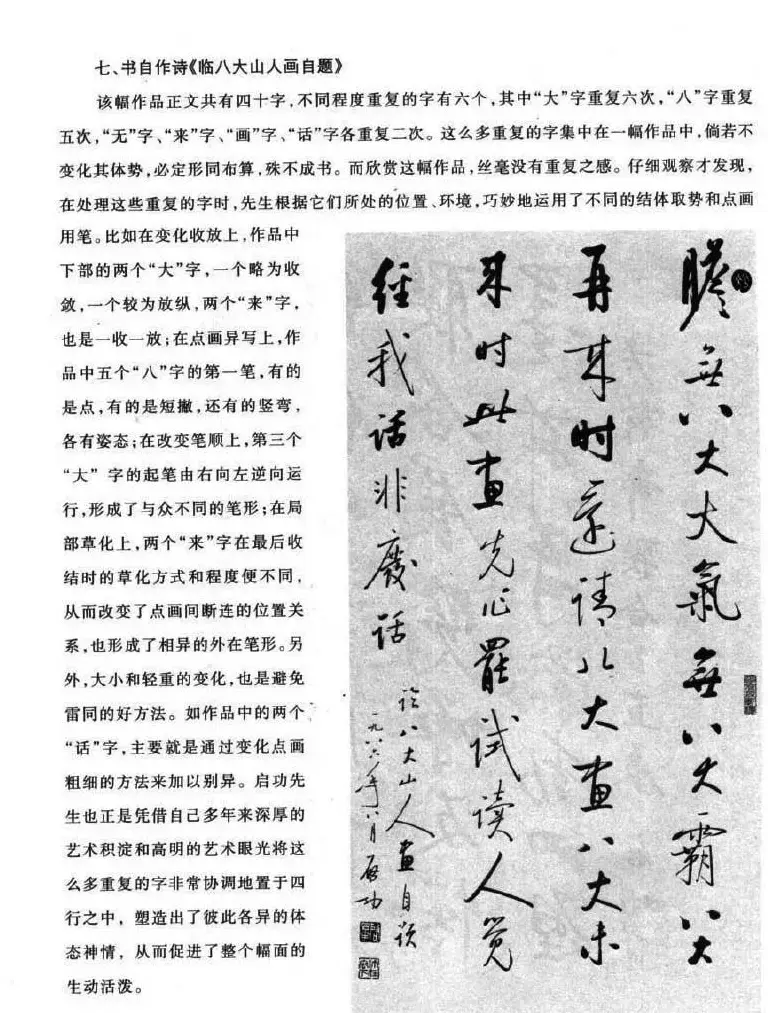 七、书自作诗《临八大山人画自题》
该幅作品正文共有四十字,不同程度重复的字有六个,其中“大”字重复六次,“八”字重复
五次,“无”字、“来”字、“画”字、“话”字各重复二次。这么多重复的字集中在一幅作品中,倘若不
变化其体势,必定形同布算,殊不成书。而欣赏这幅作品,丝毫没有重复之感。仔细观察才发现,
在处理这些重复的字时,先生根据它们所处的位置、环境,巧妙地运用了不同的结体取势和点画
用笔。比如在变化收放上,作品中
下部的两个“大”字,一个略为收
敛,一个较为放纵,两个“来”字,
也是一收一放;在点画异写上,作
品中五个“八”字的第一笔,有的
是点,有的是短撇,还有的竖弯,
各有姿态;在改变笔顺上,第三个
“大”字的起笔由右向左逆向运
行,形成了与众不同的笔形;在局
部草化上,两个“来”字在最后收
结时的草化方式和程度便不同,
从而改变了点画间断连的位置关
系,也形成了相异的外在笔形。另
外,大小和轻重的变化,也是避免
雷同的好方法。如作品中的两个
“话”字,主要就是通过变化点画
粗细的方法来加以别异。启功先
生也正是凭借自己多年来深厚的
艺术积淀和高明的艺术眼光将这
么多重复的字非常协调地置于四
行之中,塑造出了彼此各异的体
态神情,从而促进了整个幅面的
生动活泼。
膽無八大大氣無八大霸八大
再来时還請八大畫八大未
来时此畫先作罷试读人觉
經我話非廢話
临八大山人畫自题
一九八六年八月启功